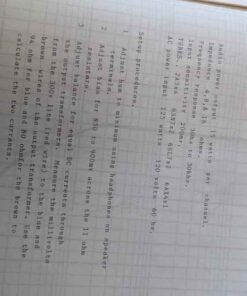 Audio power output 15 watts per channel.
Impedance 4, 8, 16 ohms.
Frequency response 30hz to 20khz.
Input sensitivity
TUBES.
AC power input 125 watts 120 volts 60 hz.
Setup procedures.
1 Adjust hum to minimum using headphones on speaker
terminals.
2 Adjust bias for 850 to 900mv across the 11 ohm
resistors.
3 Adjust balance for equal DC currents through
the output transformers. Measure the millivolts
from the 300v line (red wire) to the blue and
brown wires of the output transformer. Use the
94 ohm for blue and 80 ohm for the brown to
calculate the two currents.